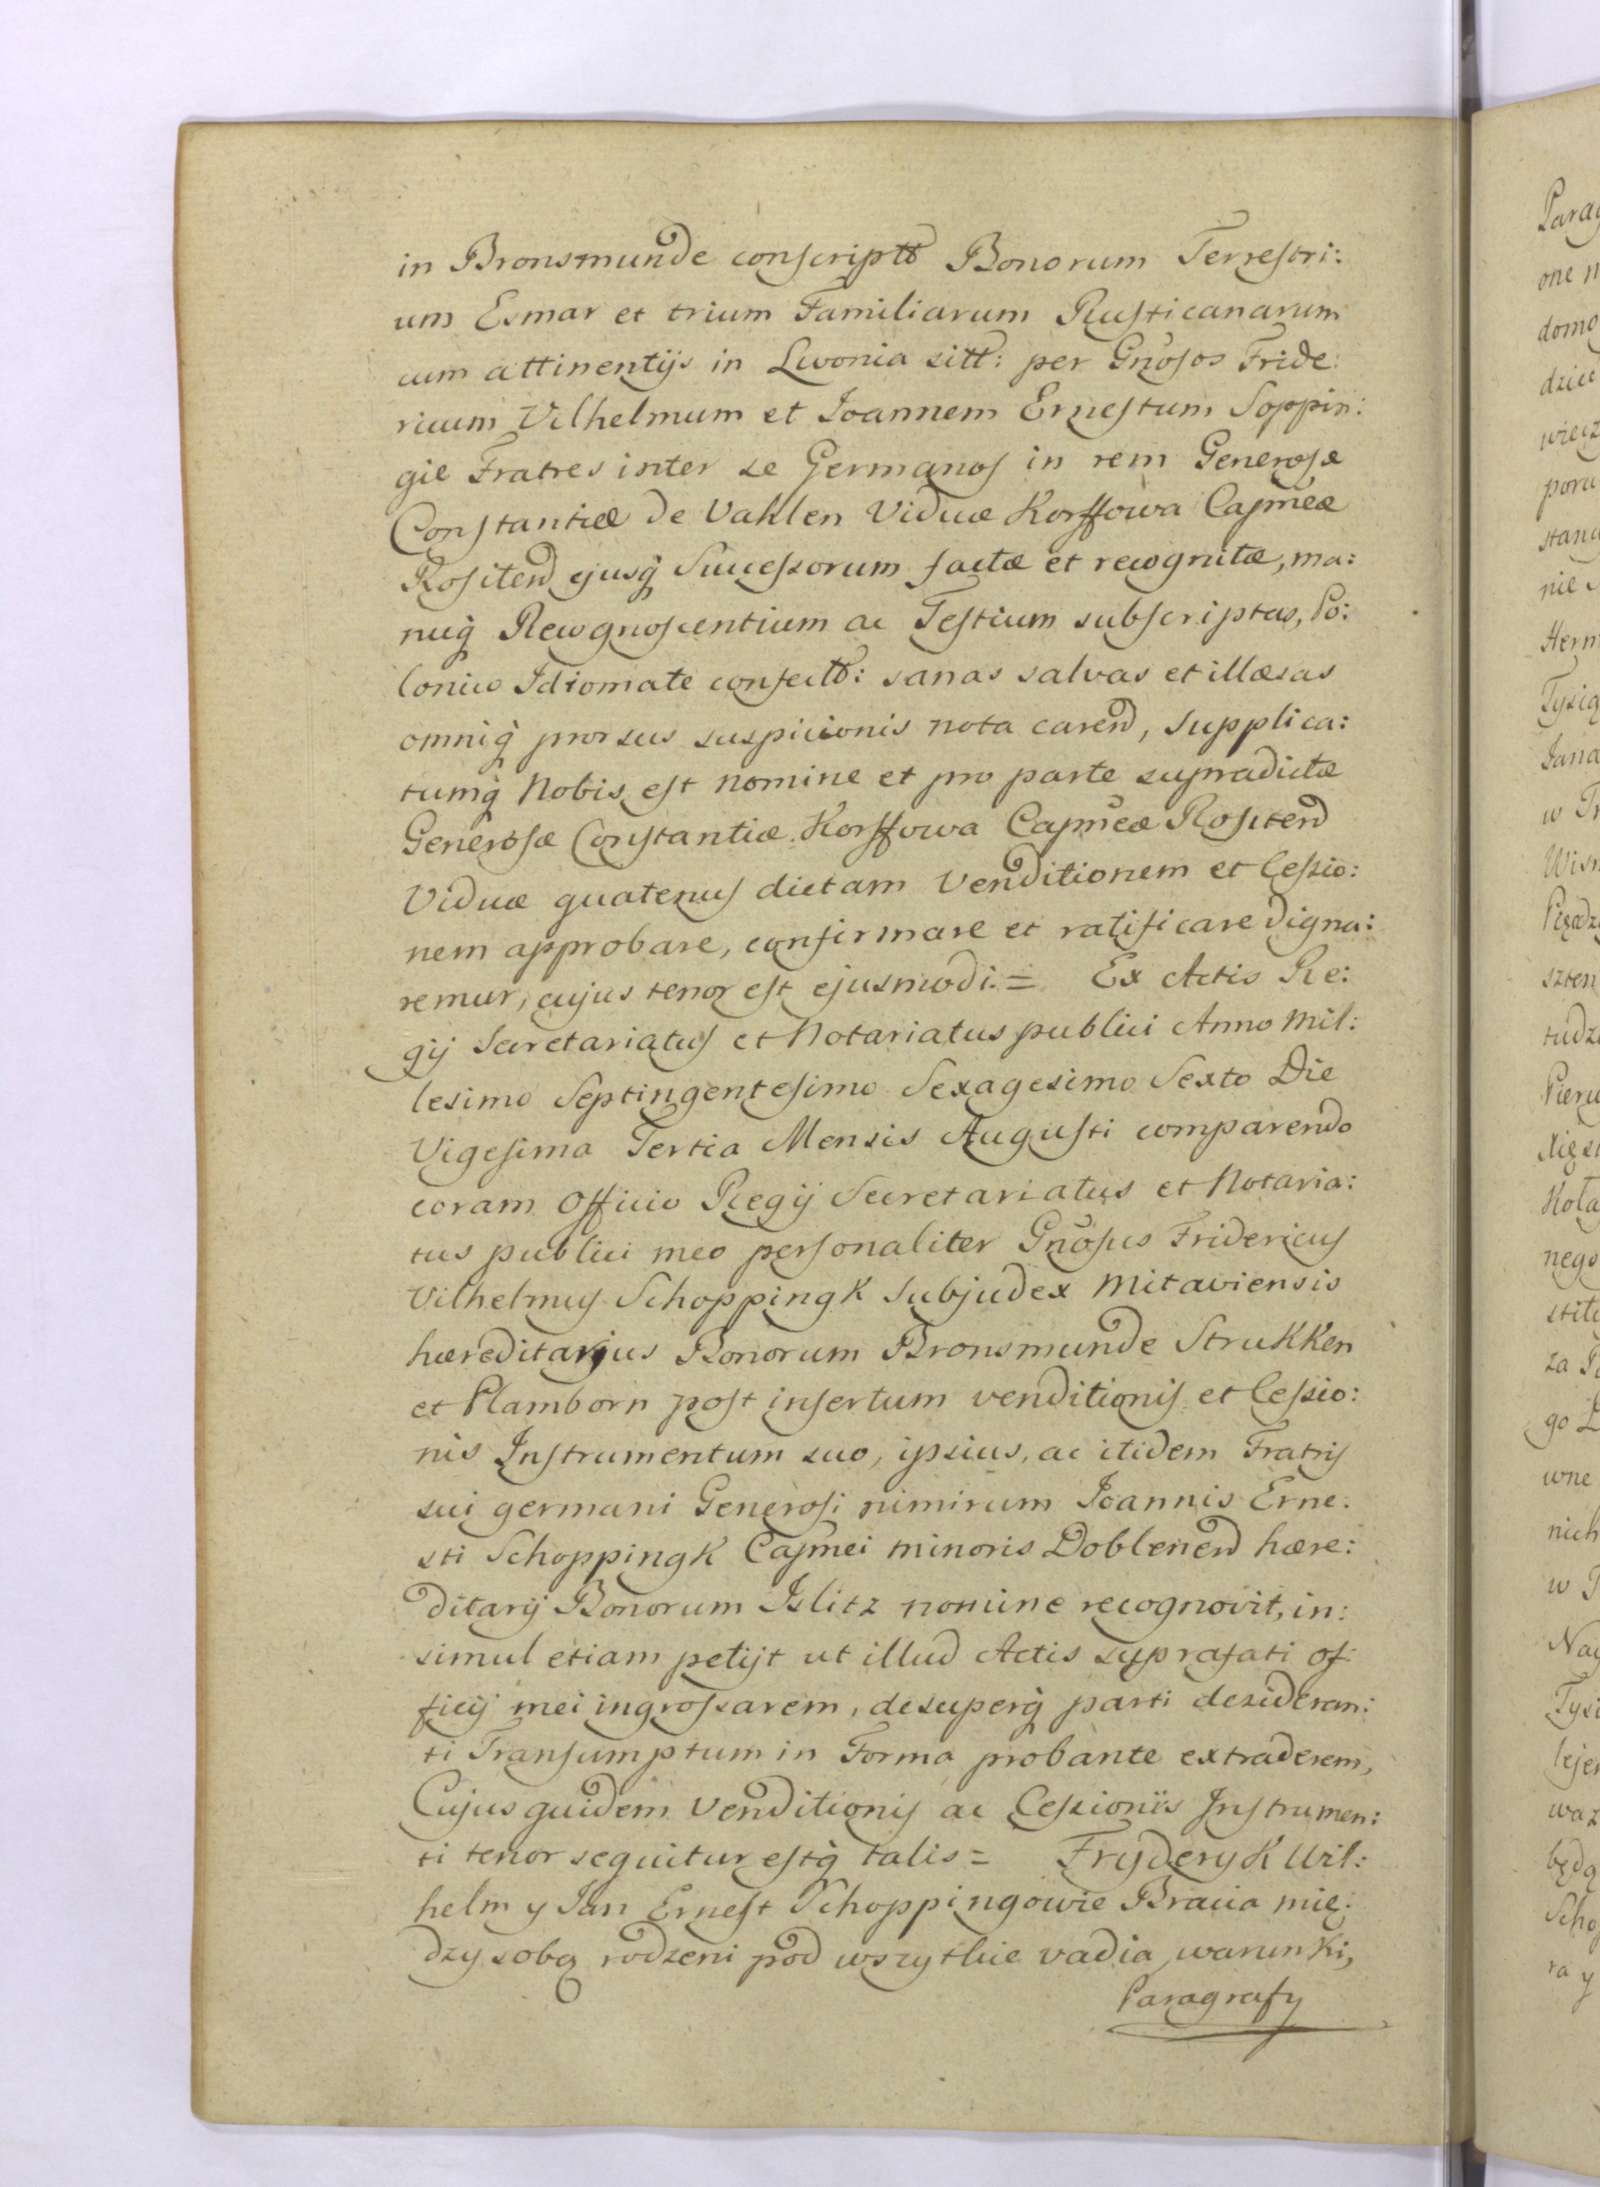 in Bronsmunde conscriptt Bonorum Terrestri:
um Esmar et trium Familiarum Rusticanarum
cum attinentijs in Livonia sitt: per Gnosos Fride:
ricum Vilhelmum et Joannem Ernestum Soppin:
gie Fratres inter se Germanos in rem Generosæ
Constantiæ de Vahlen Viduæ Korffowa Capneæ
Rositend ejusq̃ Successorum factæ et recognitæ, ma:
nuq̃ Recognoscentium ac Testium subscriptas, Po:
lonico Idiomate confectt: sanas salvas et illæsas
omniq̃ prorsus suspicionis nota carend, supplica:
tumq̃ Nobis est nomine et pro parte supradictæ
Generosæ Constantiæ Korffowa Capneæ Rositend
Viduæ quatenus dictam Venditionem et Cessio:
nem approbare, confirmare et ratificare digna:
remur, cujus tenor est ejusmodi. = Ex Actis Re:
gij Secretariatus et Notariatus publici Anno Mil:
lesimo Septingentesimo Sexagesimo Sexto Die
Vigesima Tertia Mensis Augusti comparendo
coram Officio Regij Secretariatus et Notaria:
tus publici meo personaliter Gnosus Fridericus
Vilhelmus Schoppingk Subjudex Mitaviensis
hæreditarius Bonorum Bronsmunde Strukken
et Plamborn post insertum venditionis et Cessio:
nis Instrumentum suo, ipsius, ac itidem Fratris
sui germani Generosi nimirum Joannis Erne:
sti Schoppingk Capnei minoris Doblenend hære:
ditarij Bonorum Islitz nomine recognovit, in:
simul etiam petijt ut illud Actis suprafati of:
ficij mei ingrossarem, desuperq̃ parti desideran:
ti Transumptum in Forma probante extraderem,
Cujus quidem Venditionis ac Cessioniis Instrumen:
ti tenor sequitur estq̃ talis = Fryderyk Wil:
helm y Jan Ernest Schoppingowie Bracia mię:
dzy sobą rodzeni pod wszytkie vadia, warunki,
Paragrafy